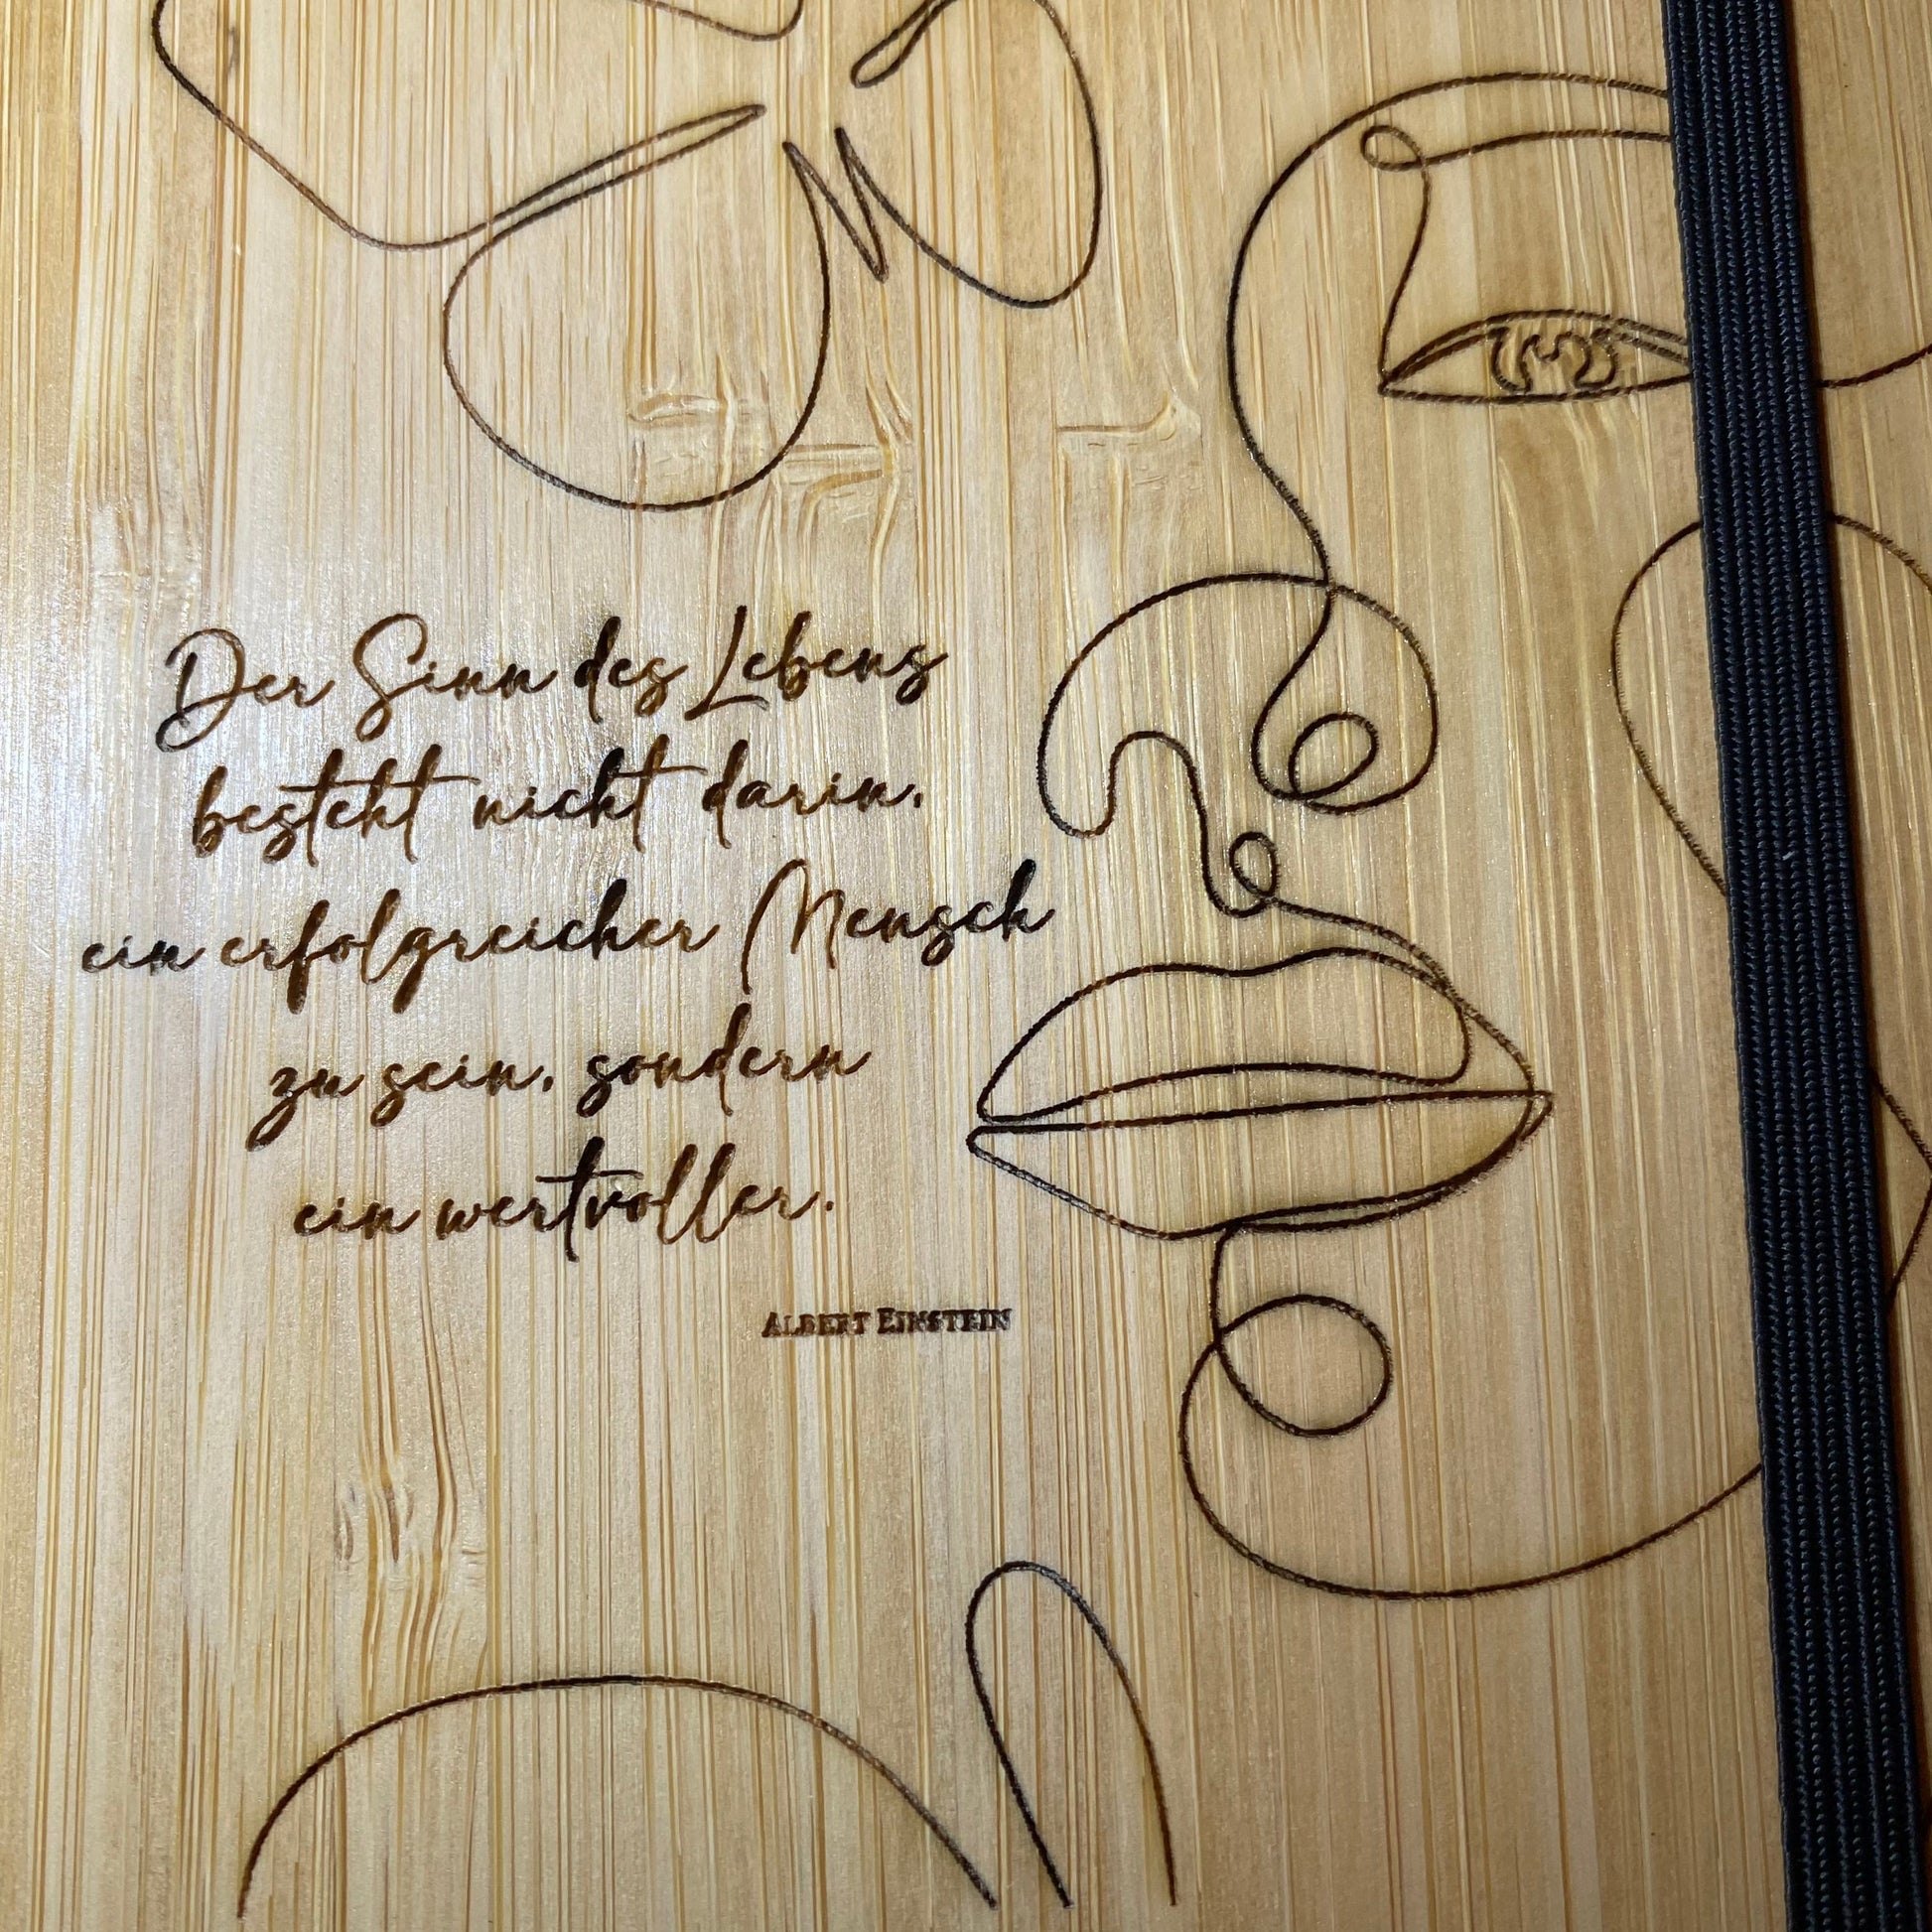 Der Sinn des Lebens
besteht nicht darin,
ein erfolgreicher Mensch
zu sein, sondern
ein wertvoller.
Albert Einstein